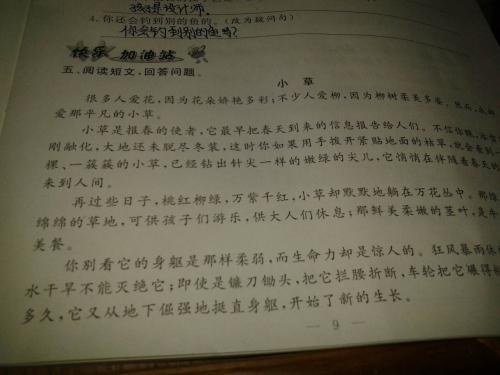 孩是设计师.
4.你还会钓到别的鱼的。(改为疑问句)
你会钓到别的鱼吗?
快乐 加油站
五、阅读短文,回答问题。
小草
很多人爱花,因为花朵娇艳多彩;不少人爱柳,因为柳树柔美多姿。
爱那平凡的小草。
小草是报春的使者,它最早把春天到来的信息报告给人们。不信你瞧,冰
刚融化,大地还未脱尽冬装,这时你如果用手拨开紧贴地面的枯草,就会看到一
棵、一簇簇的小草,已经钻出针尖一样的嫩绿的尖儿,它悄悄在伴随着春天的
来到人间。
再过些日子,桃红柳绿,万紫千红,小草却默默地躺在万花丛中。那
绵绵的草地,可供孩子们游乐,供大人们休息;那鲜美柔嫩的茎叶,是牛
美餐。
你别看它的身躯是那样柔弱,而生命力却是惊人的。狂风暴雨
水干旱不能灭绝它;即使是镰刀锄头,把它拦腰折断,车轮把它碾得
多久,它又从地下倔强地挺直身躯,开始了新的生长。
— 9 —